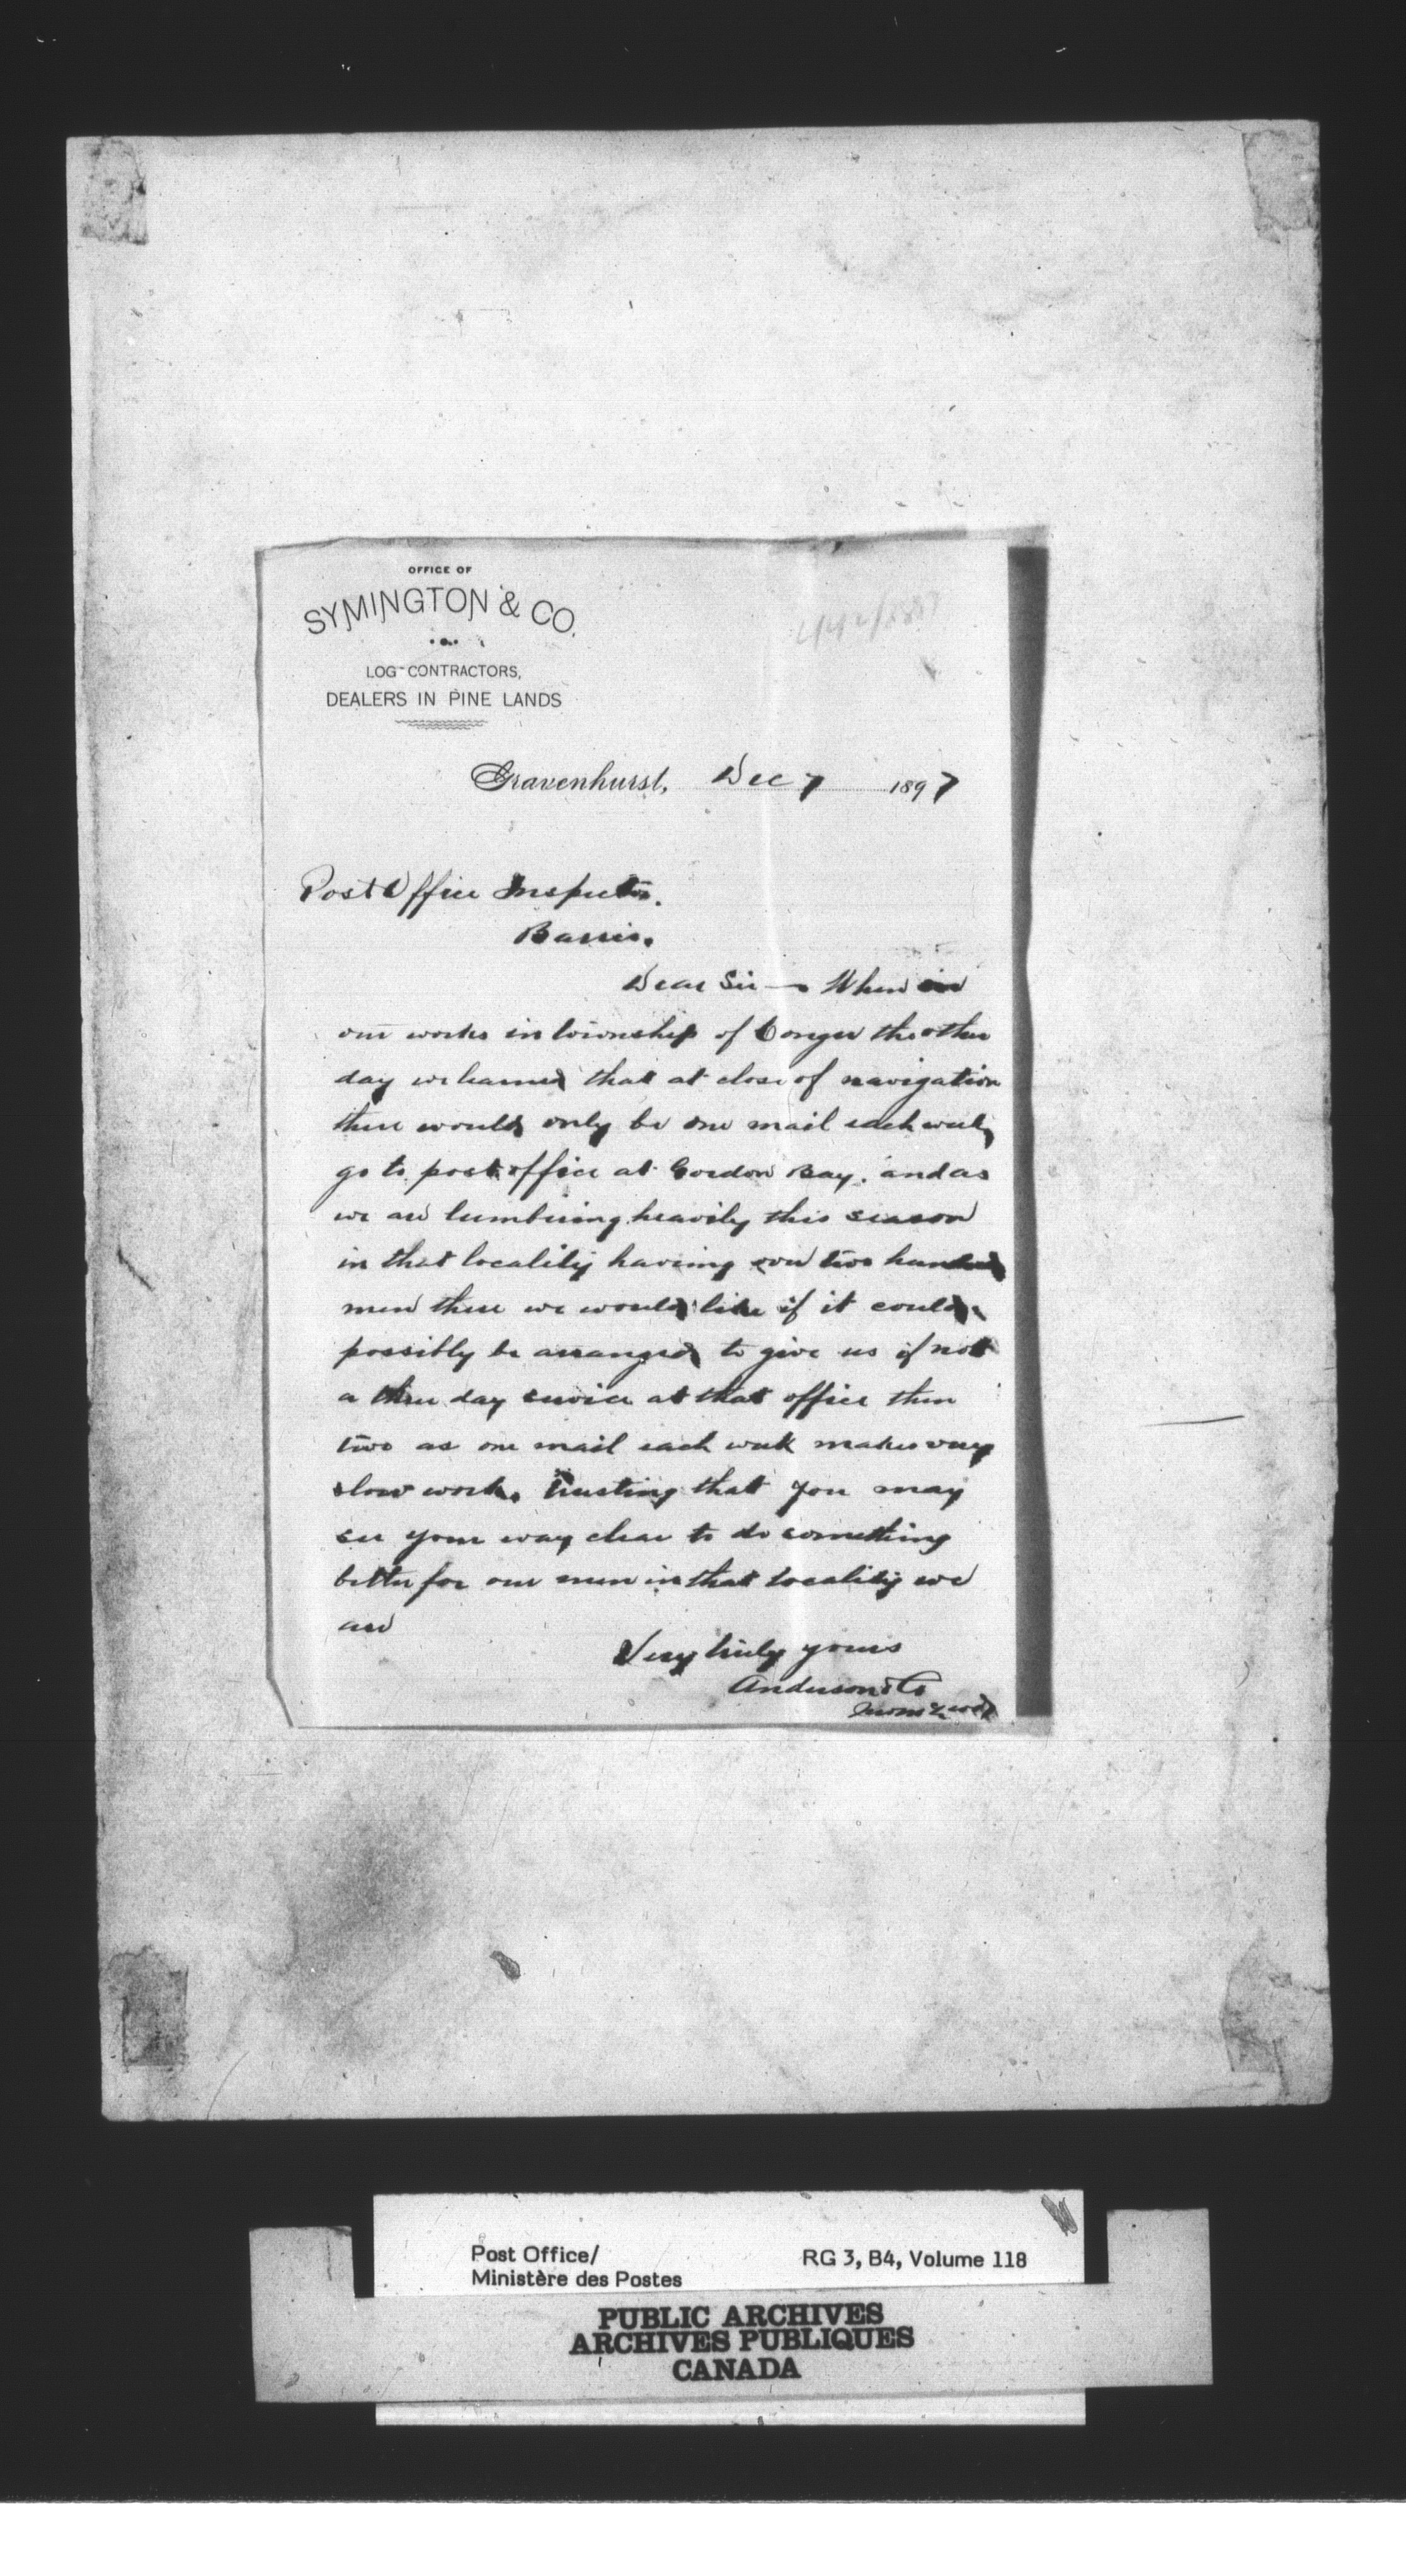 OFFICE OF
SYMINGTON & CO.
LOG CONTRACTORS,
DEALERS IN PINE LANDS
Gravenhurst, Dec 7 1897
Post Office Inspector.
Barrie.
Dear Sir — When in
our works in township of Conger the other
day we learned that at close of navigation
there would only be one mail each week
go to post office at Gordon Bay. and as
we are lumbering heavily this season
in that locality having over two hundred
men there we would like if it could
possibly be arranged to give us if not
a three day service at that office then
two as one mail each week makes very
slow work. Trusting that you may
see your way clear to do something
better for our men in that locality we
are
Very truly yours
Anderson & Co
Post Office/ RG 3, B4, Volume 118
Ministère des Postes
PUBLIC ARCHIVES
ARCHIVES PUBLIQUES
CANADA